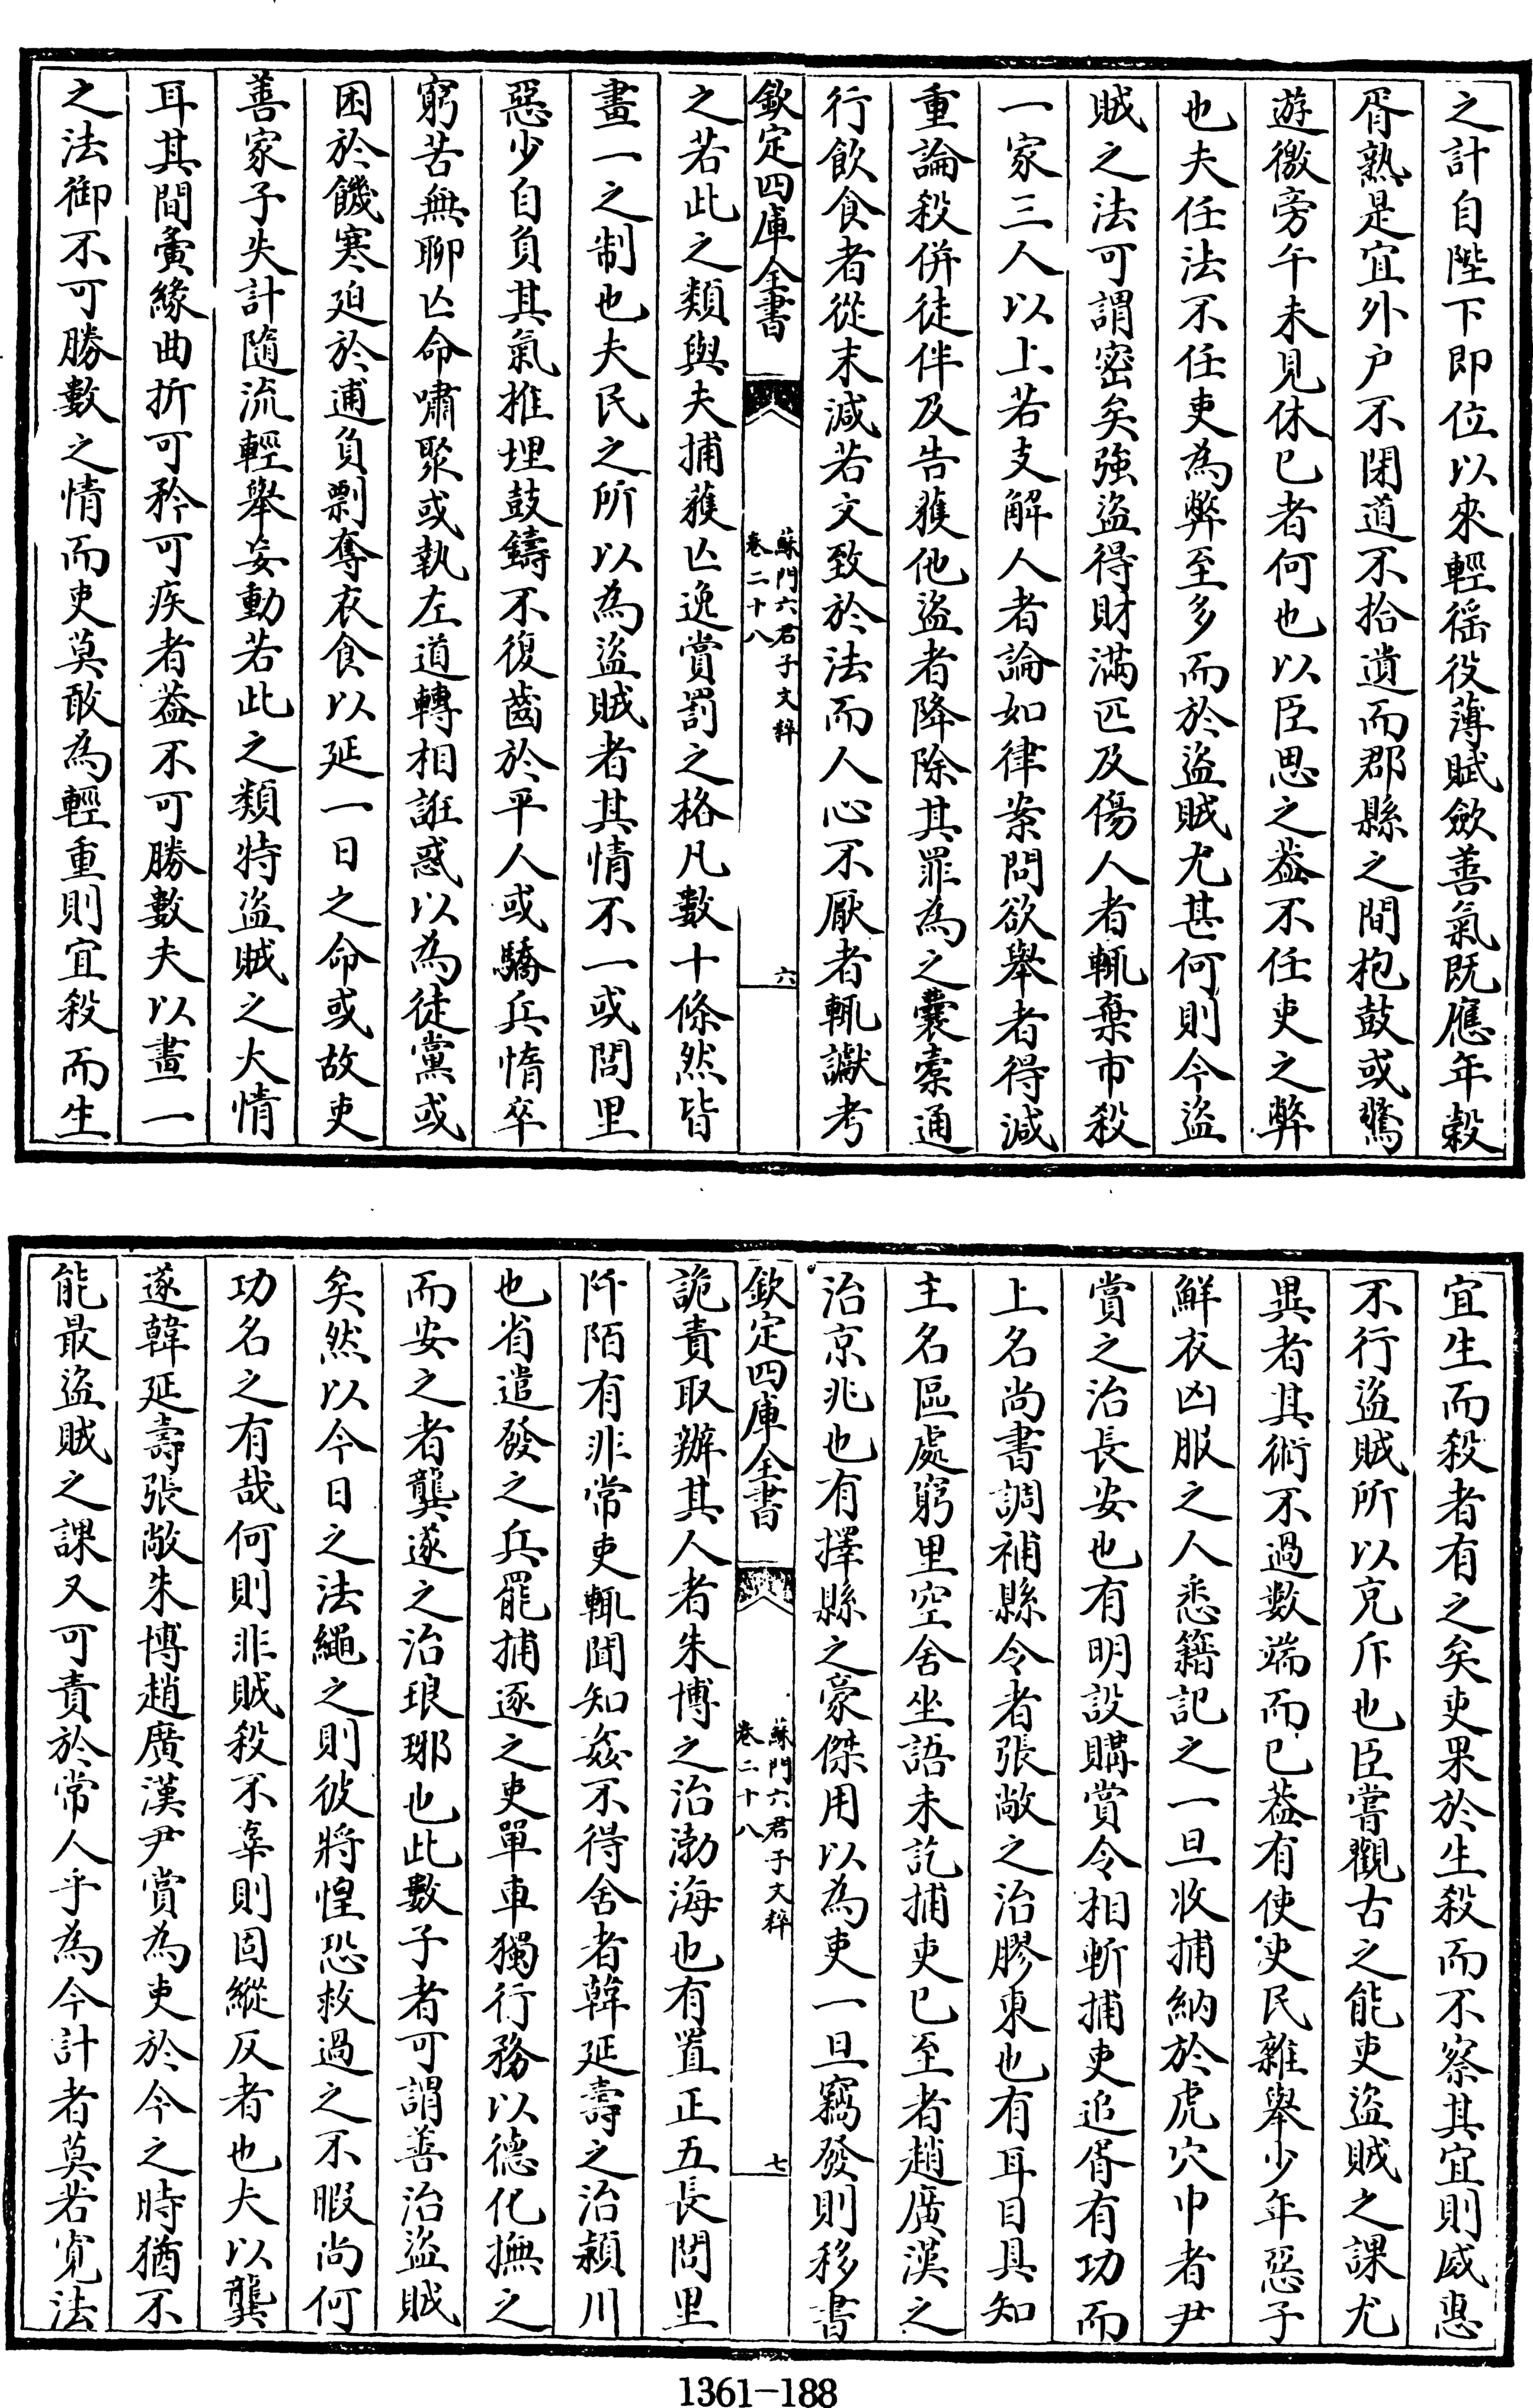 之計自陛下即位以來輕徭役薄賦歛善氣既應年穀
胥熟是宜外户不閉道不拾遺而郡縣之間枹鼓或驚
遊徼旁午未見休已者何也以臣思之葢不任吏之弊
也夫任法不任吏為弊至多而於盜賊尤甚何則今盜
賊之法可謂密矣強盜得財滿匹及傷人者輒棄市殺
一家三人以上若支解人者論如律案問欲舉者得減
重論殺併徒伴及告獲他盜者降除其罪為之囊橐通
行飲食者從末減若文致於法而人心不厭者輒讞考
欽定四庫全書
蘇門六君子文粹
卷二十八
六
之若此之類與夫捕獲亾逸賞罰之格凡數十條然皆
畫一之制也夫民之所以為盜賊者其情不一或閭里
惡少自負其氣推埋鼓鑄不復齒於平人或驕兵惰卒
窮苦無聊亾命嘯聚或執左道轉相誑惑以為徒黨或
困於饑寒廹於逋負剽奪衣食以延一日之命或故吏
善家子失計隨流輕舉妄動若此之類特盜賊之大情
耳其間夤緣曲折可矜可疾者葢不可勝數夫以畫一
之法御不可勝數之情而吏莫敢為輕重則宜殺而生
宜生而殺者有之矣吏果於生殺而不察其宜則威惠
不行盜賊所以充斥也臣嘗觀古之能吏盜賊之課尤
異者其術不過數端而已葢有使吏民雜舉少年惡子
鮮衣凶服之人悉籍記之一旦收捕納於虎穴中者尹
賞之治長安也有明設購賞令相斬捕吏追胥有功而
上名尚書調補縣令者張敞之治膠東也有耳目具知
主名區處窮里空舍坐語未訖捕吏已至者趙廣漢之
治京兆也有擇縣之豪傑用以為吏一旦竊發則移書
欽定四庫全書
蘇門六君子文粹
卷二十八
七
詭責取辦其人者朱博之治渤海也有置正五長閭里
阡陌有非常吏輒聞知姦不得舍者韓延壽之治潁川
也省遣發之兵罷捕逐之吏單車獨行務以德化撫之
而安之者龔遂之治琅琊也此數子者可謂善治盜賊
矣然以今日之法繩之則彼將惶恐救過之不暇尚何
功名之有哉何則非賊殺不辜則固縱反者也夫以龔
遂韓延壽張敞朱博趙廣漢尹賞為吏於今之時猶不
能最盜賊之課又可責於常人乎為今計者莫若寛法
1361-188